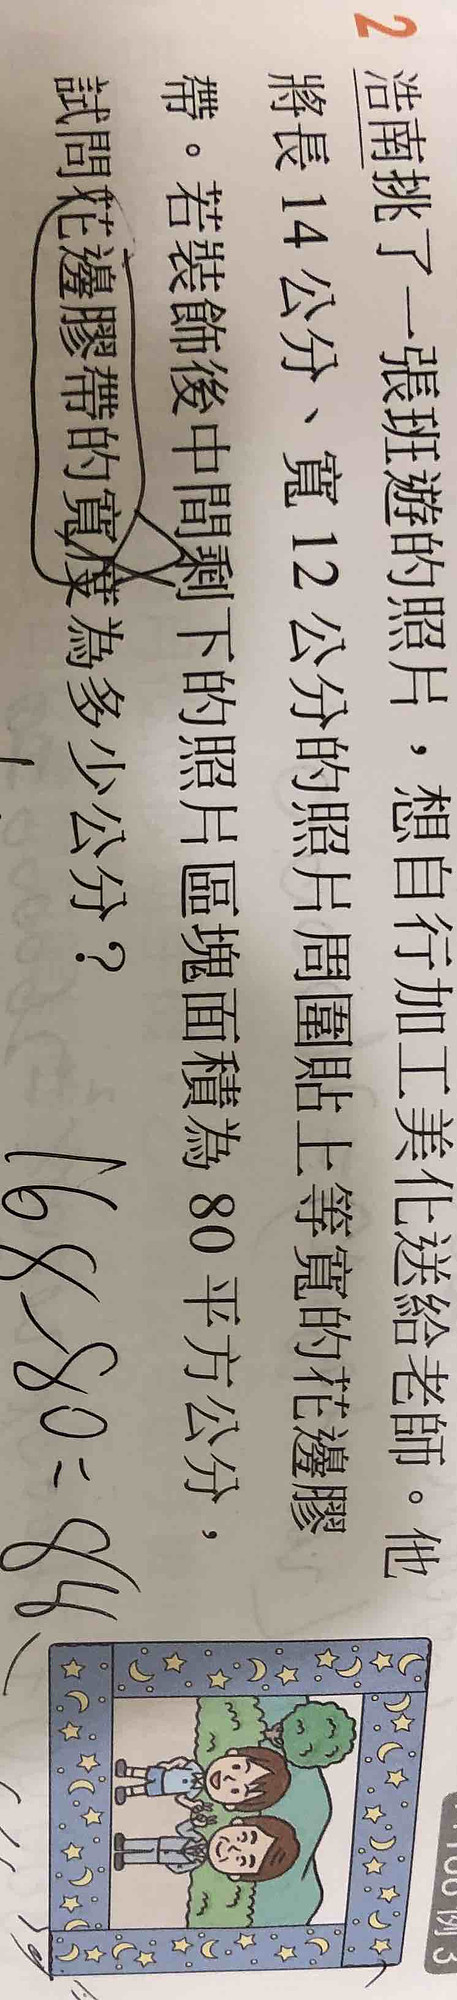 2 浩南挑了一張班遊的照片，想自行加工美化送給老師。他
將長 14 公分、寬 12 公分的照片周圍貼上等寬的花邊膠
帶。若裝飾後中間剩下的照片區塊面積為 80 平方公分，
試問花邊膠帶的寬度為多少公分？
168-80=84
例 3